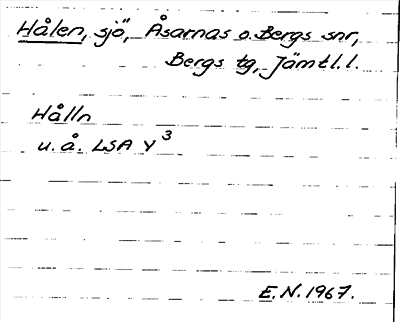 Hålen, sjö, Åsarnas o. Bergs snr,
Bergs tg, Jämtl. l.
Hålln
u. å. LSA Y 3
E. N. 1967.